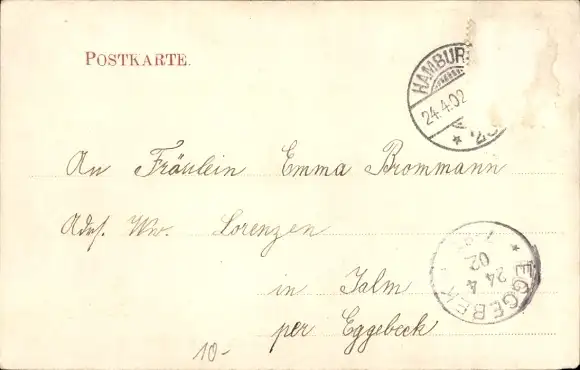 POSTKARTE.
HAMBUR
24.4.02
An Fräulein Emma Brommann
Adr. Ww. Lorenzen
in Jalm
per Eggebeck
EGGEBEK
24 4
02
10-